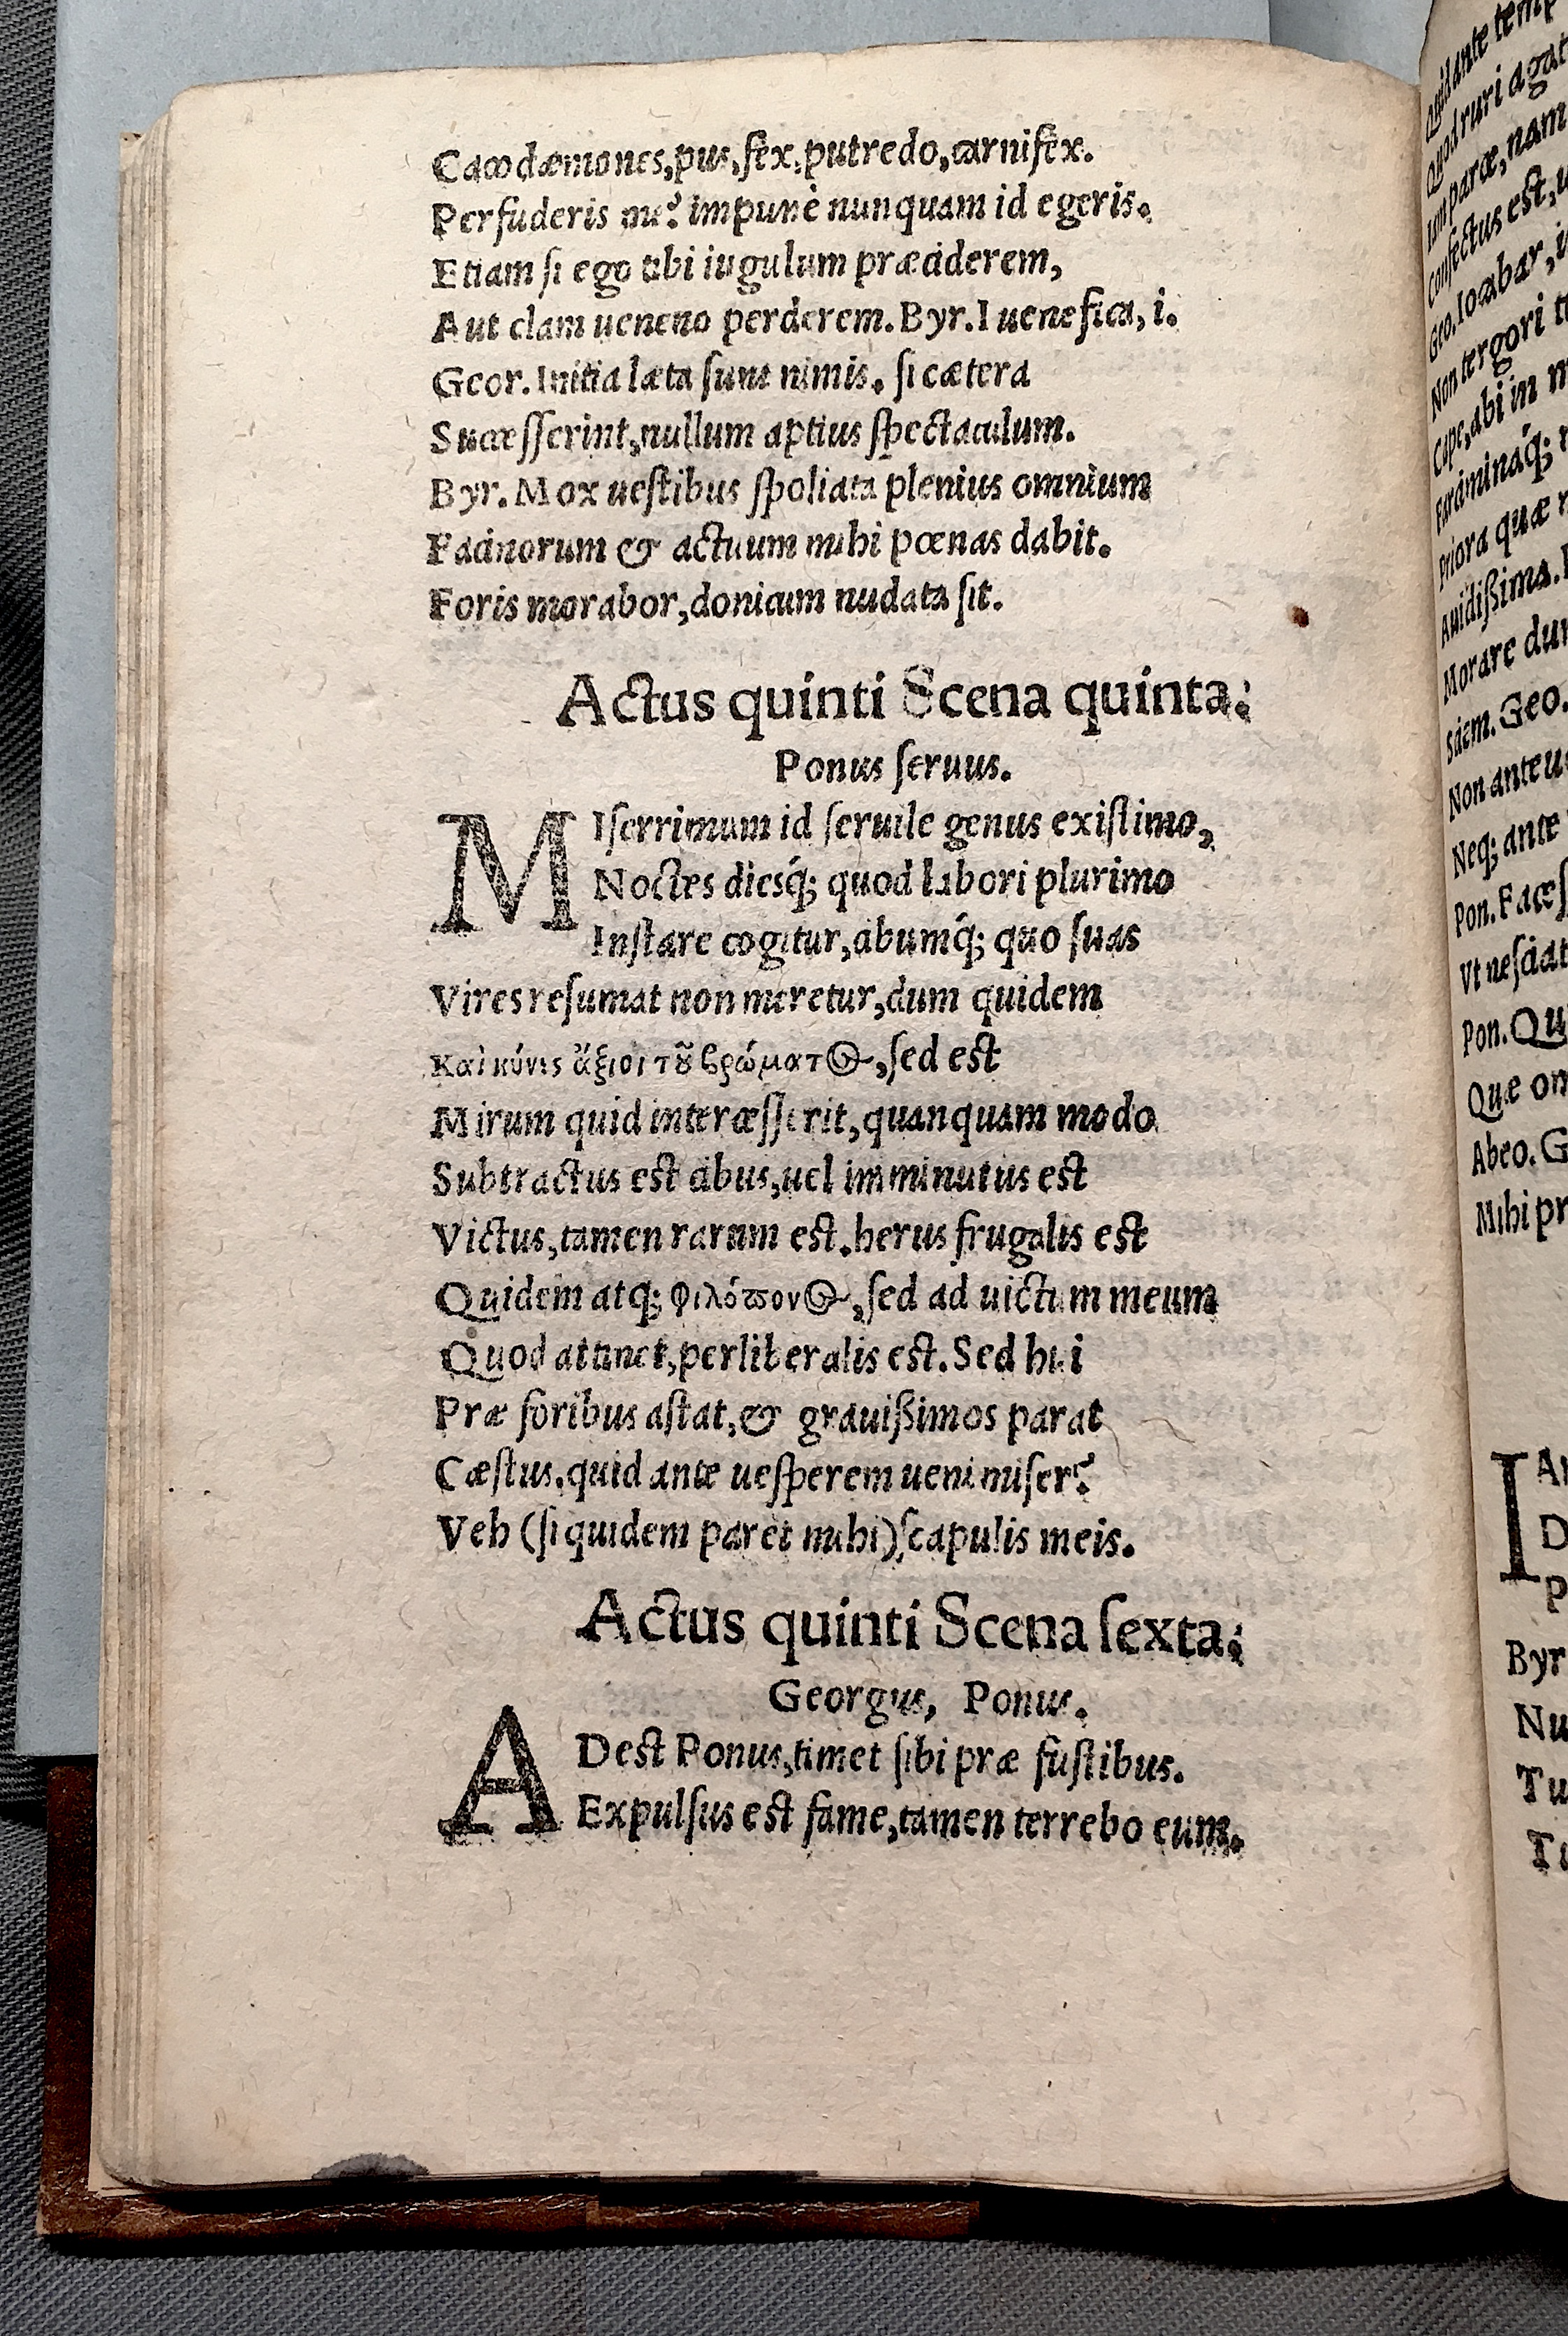 Cacodæmones,pus,fex,putredo,carnifex.
Perfuderis me? impunè nunquam id egeris.
Etiam ſi ego tibi iugulum præciderem,
Aut clam ueneno perderem. Byr. I uenefica, i.
Geor. Initia læta ſunt nimis. ſi cætera
Succeſſerint,nullum aptius ſpectaculum.
Byr. Mox ueſtibus ſpoliata plenius omnium
Facinorum & actuum mihi pœnas dabit.
Foris morabor,donicum nudata ſit.
Actus quinti Scena quinta:
Ponus ſeruus.
MIſerrimum id ſeruile genus exiſtimo,
Noctes diesq́; quod labori plurimo
Inſtare cogitur,cibumq́; quo ſuas
Vires reſumat non meretur,dum quidem
Καὶ κύνες ἄξιοι τȣ͂ βρώματ@,ſed est
Mirum quid interceſſerit,quanquam modo
Subtractus est cibus,uel imminutus est
Victus,tamen rarum est.herus frugalis est
Quidem atq; φιλόπον@,ſed ad uictum meum
Quod attinet,perliberalis est. Sed hui
Præ foribus aſtat,& grauißimos parat
Cæſtus.quid ante ueſperem ueni miſer?
Veh (ſi quidem paret mihi)ſcapulis meis.
Actus quinti Scena ſexta:
Georgus, Ponus.
ADest Ponus,timet ſibi præ fuſtibus.
Expulſus est fame,tamen terrebo eum.
Iocabar,i
Non tergori
Cape,abi in
Priora quæ
Auidißima.
Morare
Geo.
Neq; ante
Pon.
Vt neſciat
Pon.
Quæ
Abeo.
Mihi
Byr